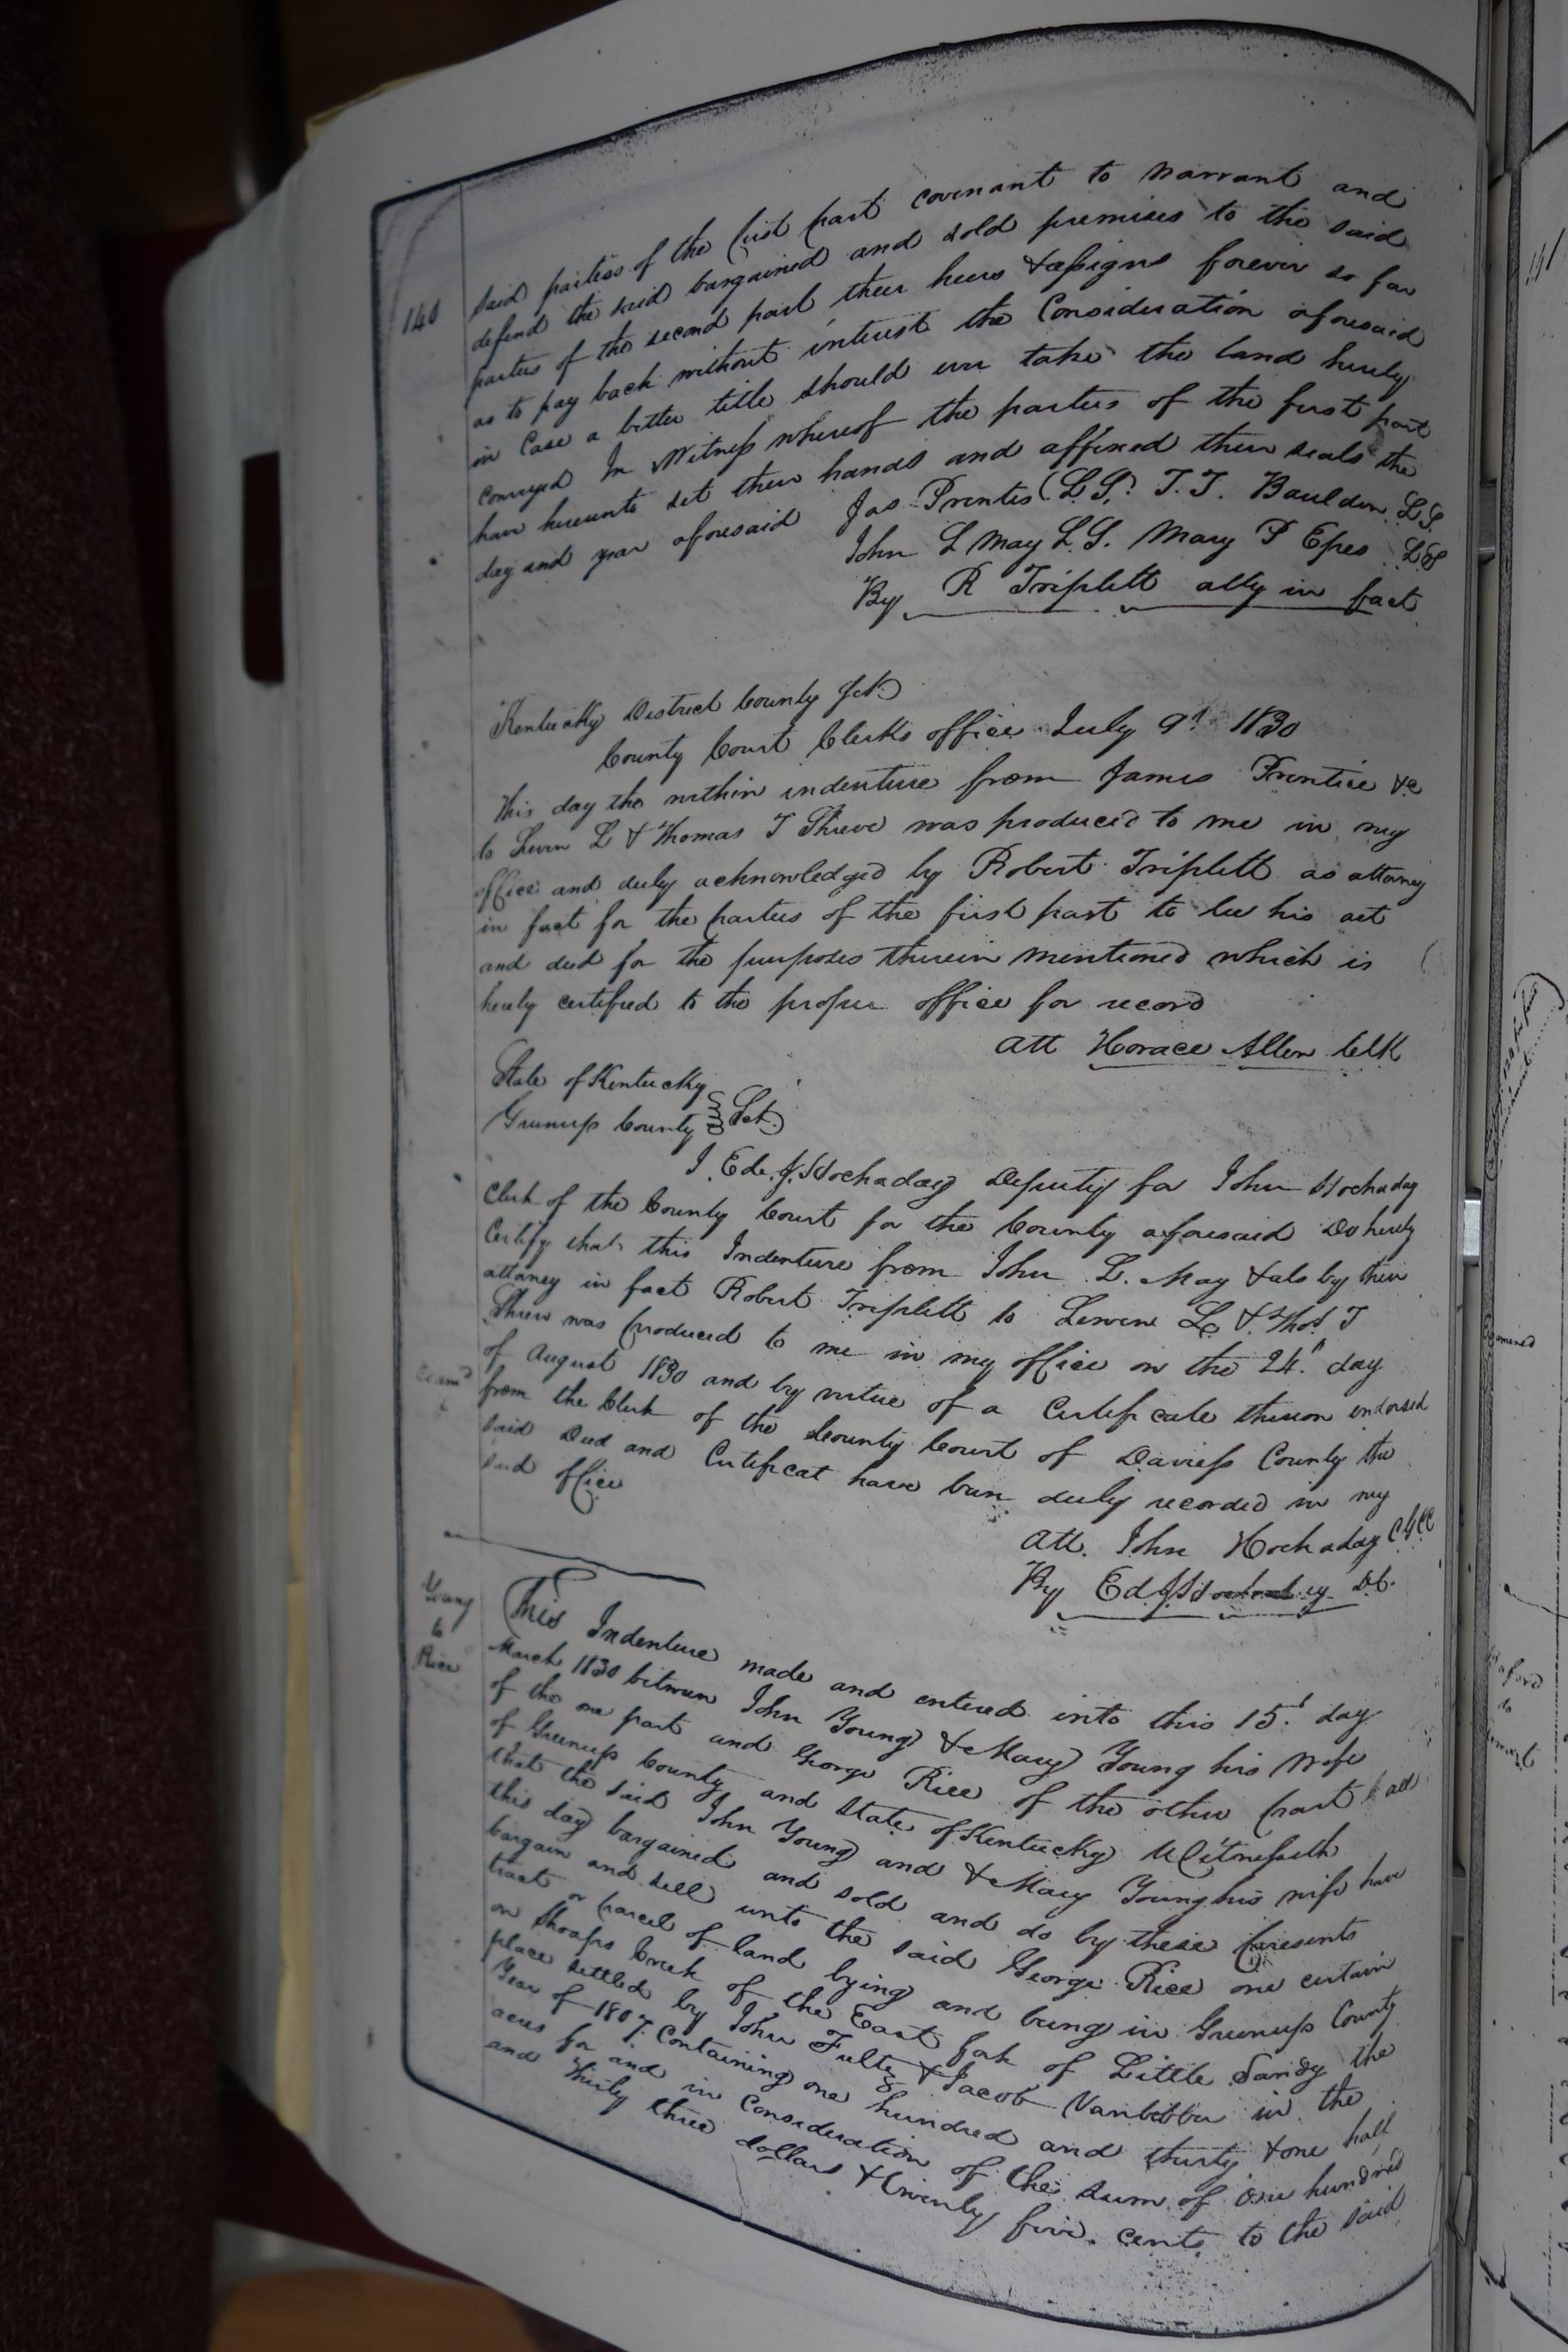 140
said parties of the first part covenant to warrant and
defend the said bargained and sold premises to the said
parties of the second part their heirs & assigns forever so far
as to pay back without interest the Consideration aforesaid
in Case a better title should ever take the land hereby
conveyed In Witness whereof the parties of the first part
have hereunto set their hands and affixed their seals the
day and year aforesaid Jas Prentis (L.S.) T. T. Bauldin L.S.
John L May L.S. Mary P Epes L.S.
By R Triplett atty in fact
Kentucky District County Sct
County Court Clerks office July 9t 1830
This day the within indenture from James Prentice &c
to Levin L & Thomas T Shreve was produced to me in my
office and duly acknowledged by Robert Triplett as attorney
in fact for the parties of the first part to bee his act
and deed for the purposes therein mentioned which is
hereby certified to the proper office for record
att Horace Allen Clk
State of Kentucky
Greenup County Sct
I. Ed. J. Hockaday Deputy for John Hockaday
Clerk of the County Court for the County aforesaid do hereby
Certify that this Indenture from John L. May & als by their
attorney in fact Robert Triplett to Leven L & Thos T
Shreve was produced to me in my office on the 24th day
of August 1830 and by virtue of a Certificate thereon endorsed
Exam'd
from the Clerk of the County Court of Daviess County the
said Deed and Certificat have been duly recorded in my
said office
att. John Hockaday C.G.C.C
By Ed J Hockaday D.C.
Young
to
Rice
This Indenture made and entered into this 15t day
March 1830 between John Young & Mary Young his wife
of the one part and George Rice of the other part all
of Greenup County and State of Kentucky Witnesseth
that the said John Young and & Mary Young his wife have
this day bargained and sold and do by these presents
bargain and sell unto the said George Rice one certain
tract or parcel of land lying and being in Greenup County
on Shoaps Creek of the East fork of Little Sandy the
place settled by John Fultz & Jacob Vanbibber in the
Year of 1807. Containing one hundred and thirty & one half
acres for and in Consideration of the sum of one hundred
and thirty three dollars & twenty five cents to the said